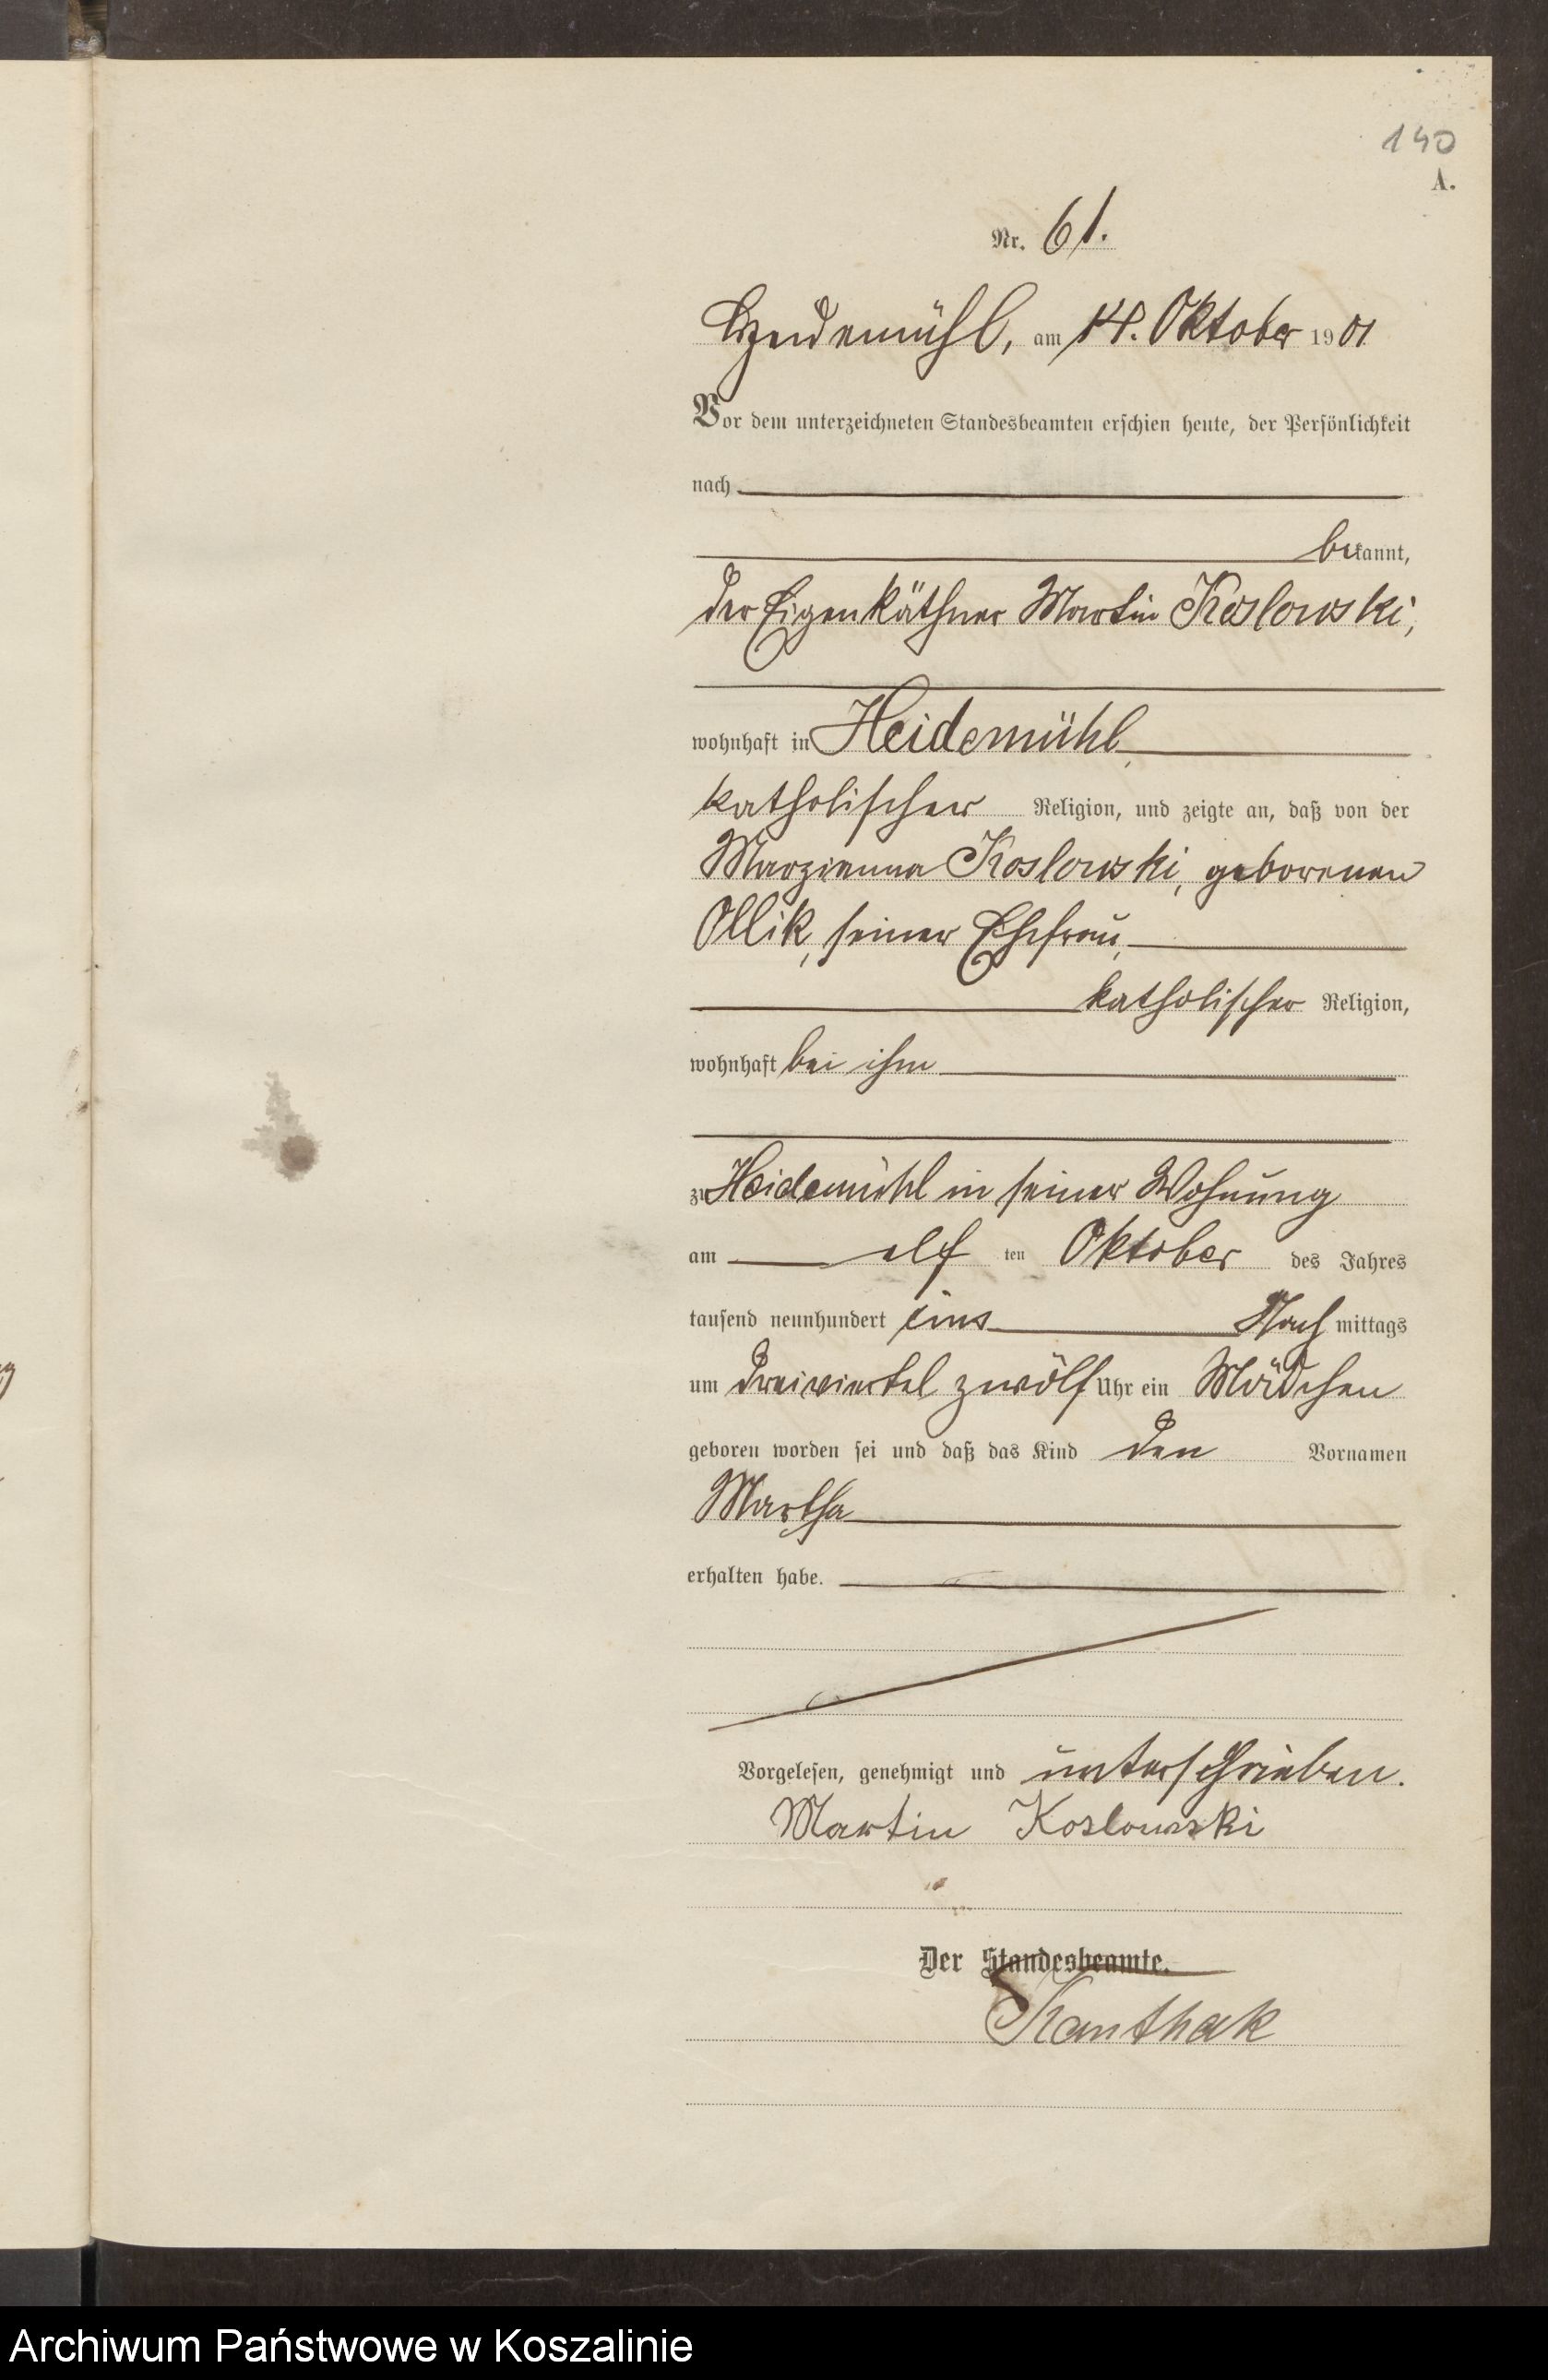 140
A.
Nr. 61.
Heidemühl, am 14. Oktober 1901
Vor dem unterzeichneten Standesbeamten erschien heute, der Persönlichkeit
nach
bekannt,
der Eigenkäthner Martin Koslowski,
wohnhaft in Heidemühl,
katholischer Religion, und zeigte an, daß von der
Marzianna Koslowski, geborenen
Ollik, seiner Ehefrau,
katholischer Religion,
wohnhaft bei ihm
zu Heidemühl in seiner Wohnung
am elf ten Oktober des Jahres
tausend neunhundert eins Nach mittags
um dreiviertel zwölf Uhr ein Mädchen
geboren worden sei und daß das Kind den Vornamen
Martha
erhalten habe.
Vorgelesen, genehmigt und unterschrieben.
Martin Koslowski
Der Standesbeamte.
Kanthak
Archiwum Państwowe w Koszalinie